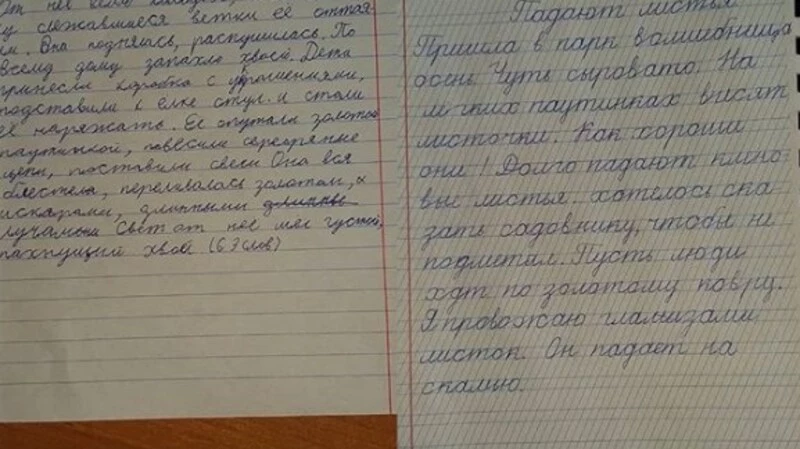 От неё
у слежавшиеся ветки её оттая
ли. Она поднялась, распушилась. По
всему дому запахло хвоей. Дети
принесли коробка с украшениями,
подставили к елке стул. и стали
её наряжать. Её опутали золотой
паутинкой, повесили серебряные
цепи, поставили свечи Она вся
блестела, переливалась золотом,
искарами, длинными длинные
лучами Свет от неё шёл густой,
пахнущий хвоей (63 слов)
Падают листья
Пришла в парк волшебница
осень Чуть сыровато. На
лигких паутинках висят
листочки. Как хороши
они! Долго падаютклено
вые листья. хотелось ска
зать садовнику, чтобы не
подметал. Пусть люди
хдт по золотому ковру.
Я провожаю глазами
листок. Он падает на
скамью.